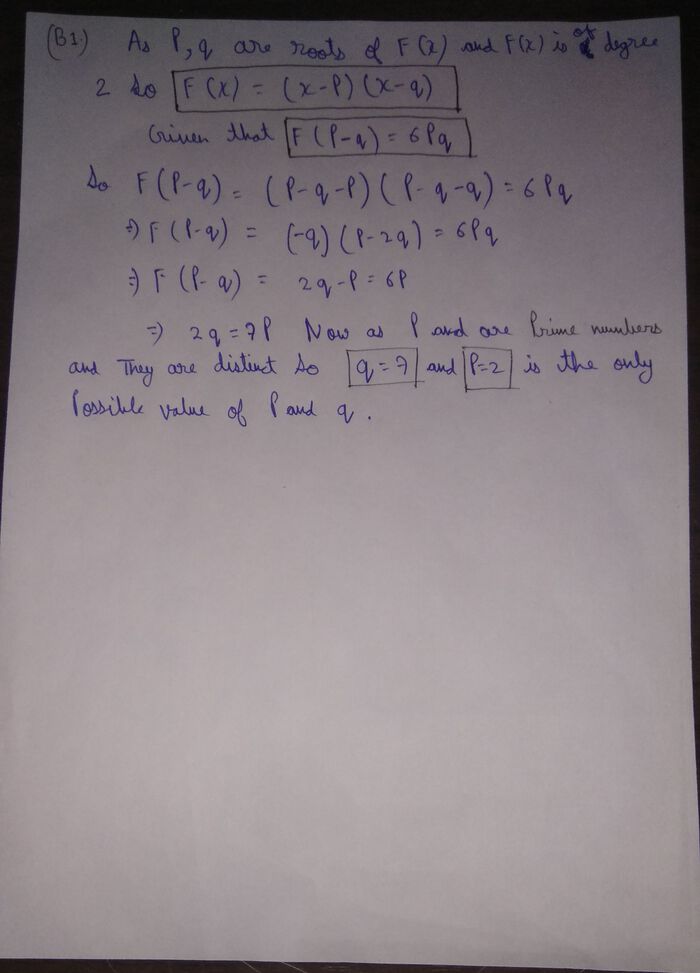 (B1.) As P, q are roots of F(x) and F(x) is of degree
2 So F(x) = (x-P)(x-q)
Given that F(P-q) = 6Pq
So F(P-q) = (P-q-P)(P-q-q) = 6Pq
=) F(P-q) = (-q)(P-2q) = 6Pq
=) F(P-q) = 2q-P = 6P
=) 2q = 7P Now as P and are Prime numbers
and They are distinct So q = 7 and P=2 is the only
Possible value of P and q.